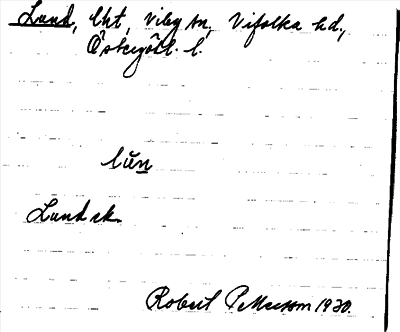 Lund, lht, Viby sn, Vifolka hd,
Östergötl. l.
lŭn
Lund sk.
Robert Pettersson 1930.